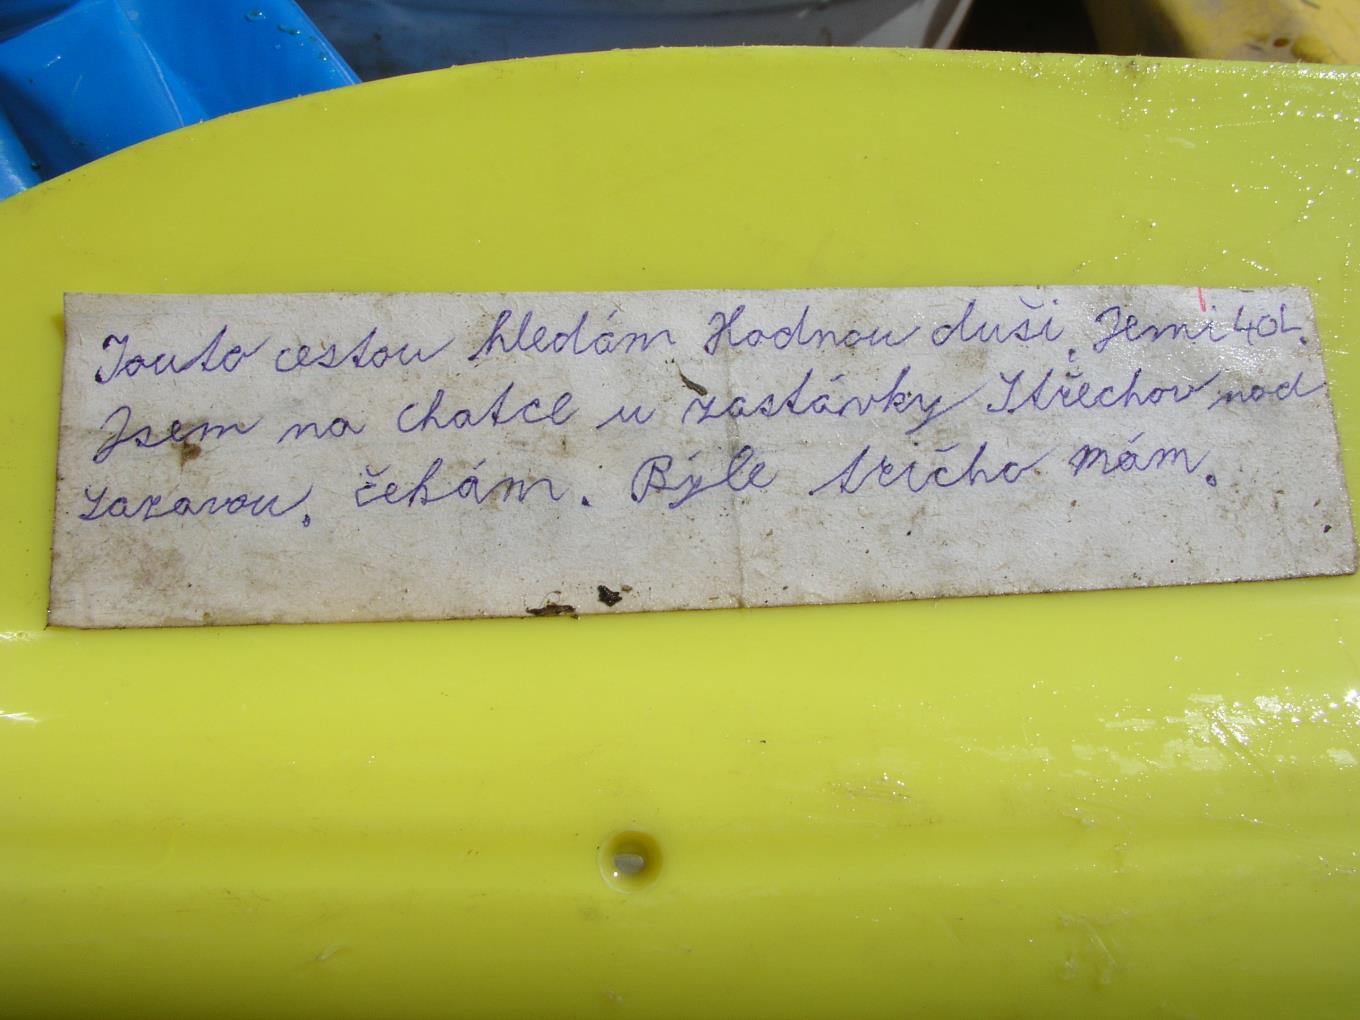 Touto cestou hledám Hodnou duši. Jemi 40L.
Jsem na chatce u zastávky Střechov nad
Sazavou. čekám. Býle tričho mám.